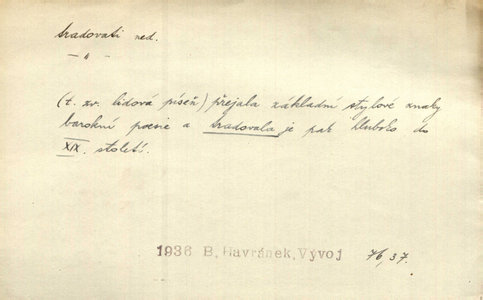 tradovati ned.
— „ —
(t. zv. lidová píseň) přejala základní stylové znaky
barokní poesie a tradovala je pak hluboko do
XIX. století.
1936 B. Havránek, Vývoj 76,37.